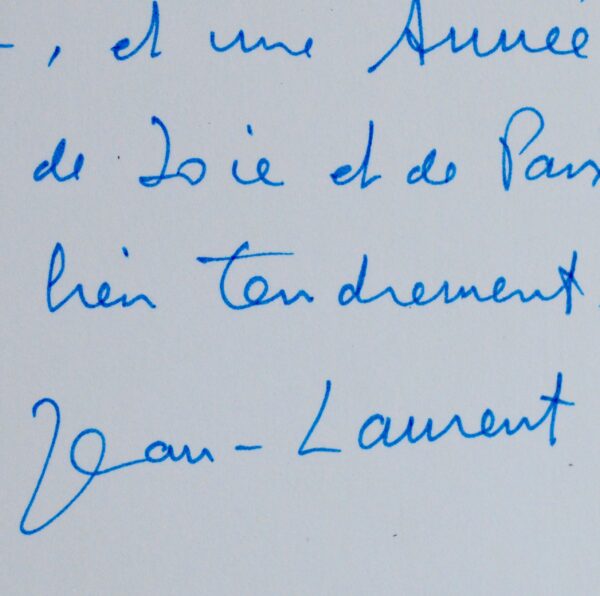 , et une Année
de Joie et de Paix
bien tendrement.
Jean-Laurent